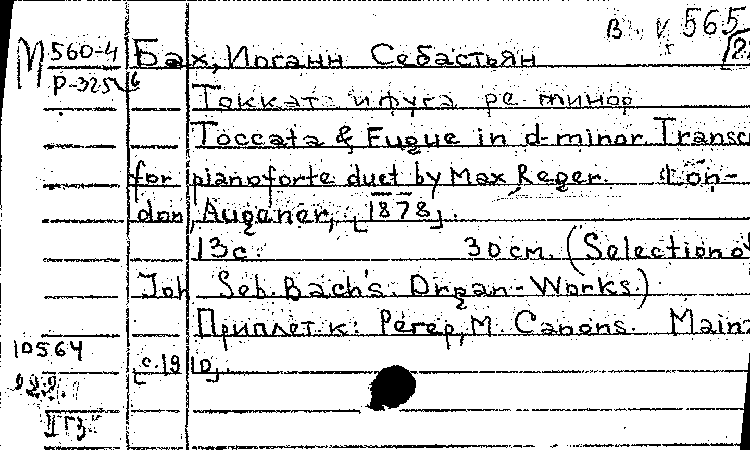 В 565
М 560-4 Бах, Иоганн Себастьян
Р-325
Токката и фуга ре минор
Toccata & Fugue in d-minor. Transc
for pianoforte duet by Max Reger. Lon-
don, Augener, [1878].
13с. 30см. (Selection o
Joh Seb. Bach's Organ-Works.)
Приплет. к: Регер, М. Canons. Mainz
10564
[c.1910].